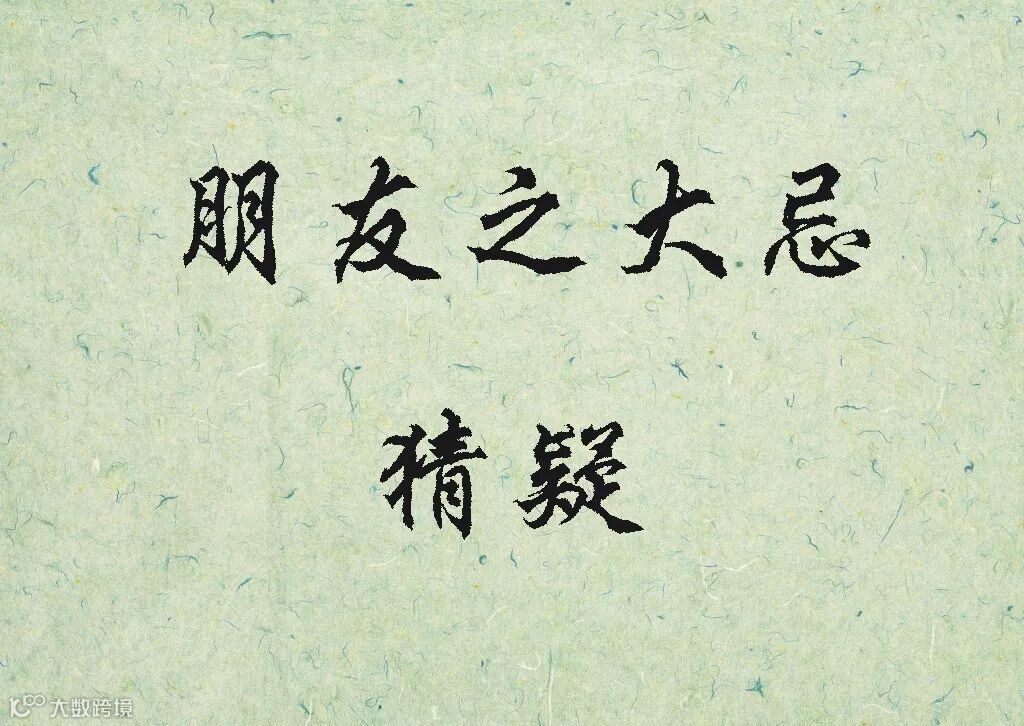 朋友之大忌
猜疑
大数跨境